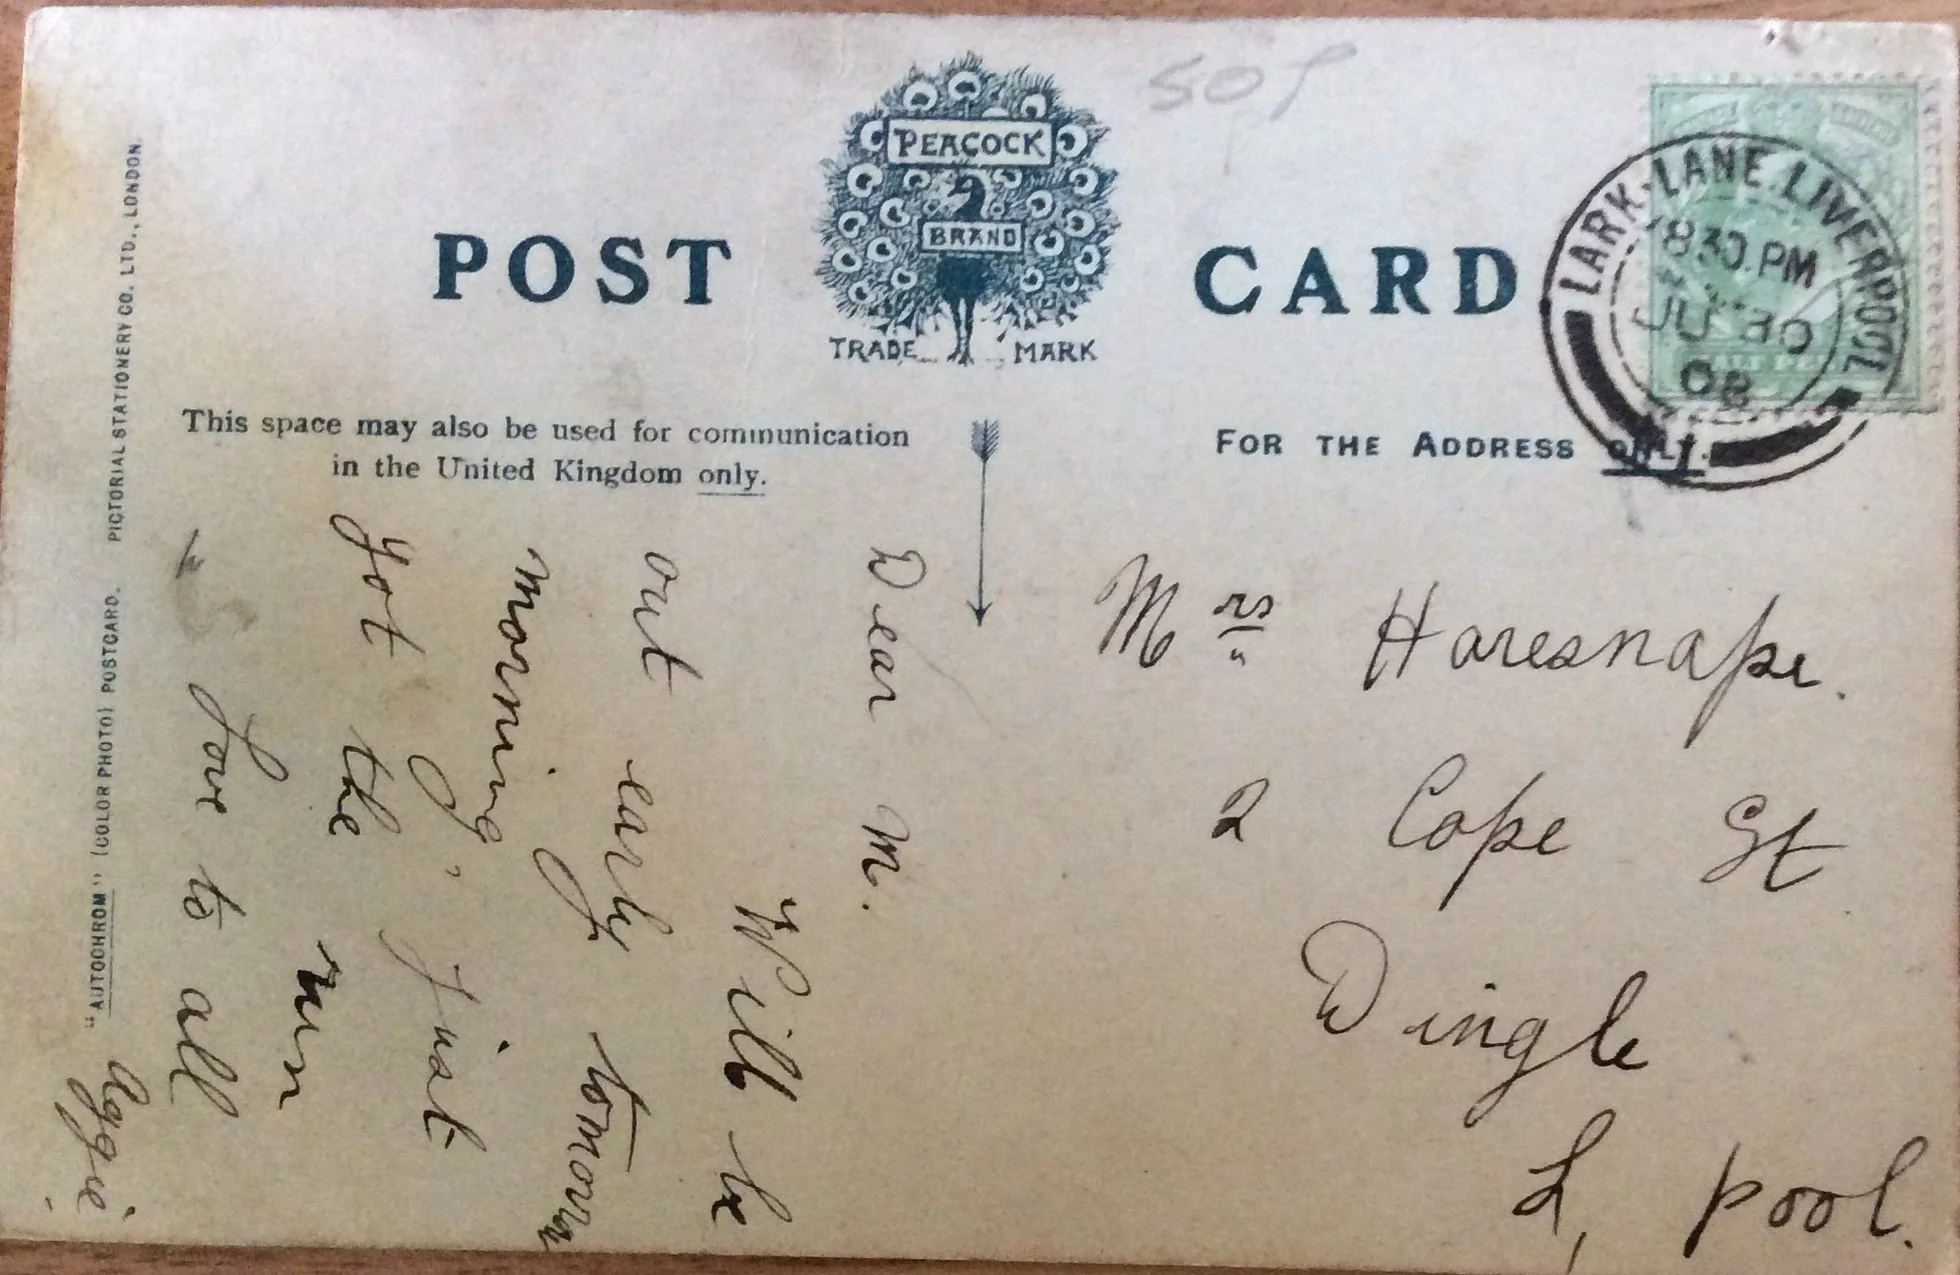 50p
PEACOCK
BRAND
TRADE MARK
POST CARD
LARK LANE. LIVERPOOL
8.30 PM
JU 30
08
This space may also be used for communication
in the United Kingdom only.
FOR THE ADDRESS ONLY.
Dear M.
Will be
out early tomorrow
morning, just
got the
run
love to all
Aggie
Mrs Haresnape.
2 Cope St
Dingle
L, pool.
"AUTOCHROM" (COLOR PHOTO) POSTCARD. PICTORIAL STATIONERY CO. LTD., LONDON.